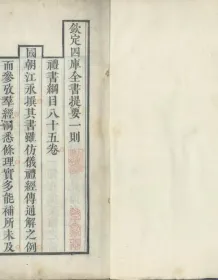 欽定四庫全書提要一則
禮書綱目八十五卷
國朝江永撰其書雖仿儀禮經傳通解之例
而參攷羣經洞悉條理實多能補所未及